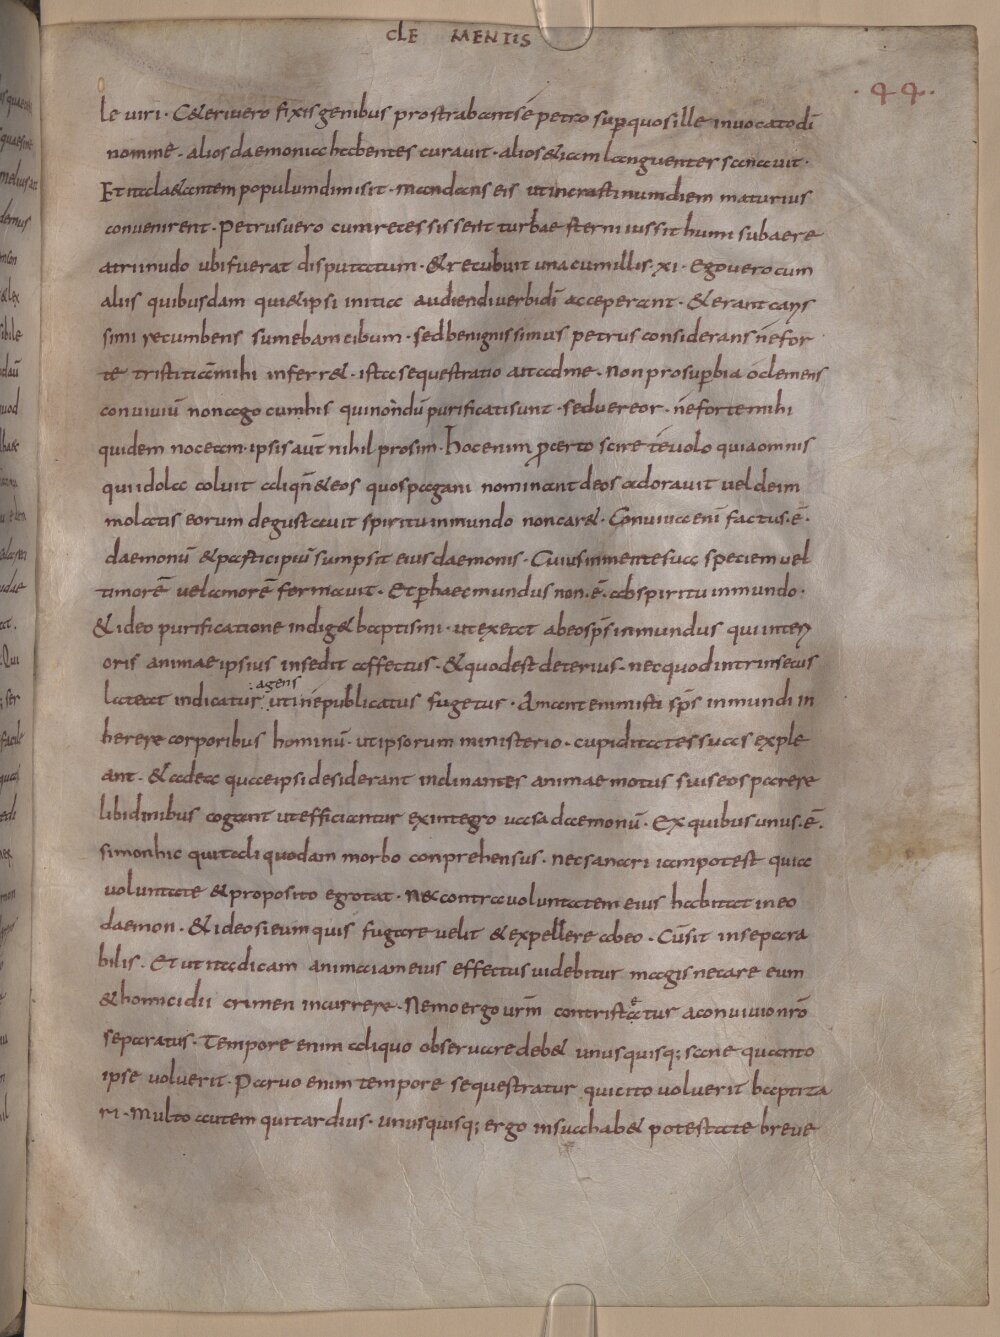 CLE MENTIS
.44.
le uiri. C&eri uero fixis genibus prostrabant sé petro sup quos ille inuocato dī
nomine. alios daemonia habentes curauit. alios &iam languentes sanauit.
Et ita cla&antem populum dimisit. mandans eis ut in crastinum diem maturius
conuenirent. Petrus uero cum recessissent turbae sterni iussit humi sub aere
atrii nudo ubi fuerat disputatum. & recubuit una cum illis. xi. Ego uero cum
aliis quibusdam qui &ipsi initia audiendi uerbi dī acceperant. & erant carıs
simi recumbens sumebam cibum. sed benignissimus petrus considerans ne for
te tristitiā mihi inferr&. ista sequestratio ait ad me. non pro supbia o clemens
conuiuiū non ago cum his qui nondū purificati sunt. sed uereor. ne forte mihi
quidem noceam. ipsis aūt nihil prosim. hoc enim pcerto scire té uolo quia omnis
qui idola coluit aliqn̄ &eos quos pagani nominant deos adorauit uel de im
molatis eorum degustauit spiritu inmundo non car&. Conuiua enī factus. ē.
daemonū & participiū sumpsit eius daemonis. Cuius in mente sua speciem uel
timorē uel amorē formauit. Et p haec mundus non. ē. ab spiritu inmundo.
& ideo purificatione indig& baptismi. ut exeat ab eo sp̄s inmundus qui interı
oris animae ipsius insedit affectus. & quod est deterius. nec quod intrinsecus
lateat indicatur : agens ut ne publicatus fugetur. Amant enim isti sp̄s inmundi in
herere corporibus hominū. ut ipsorum ministerio. cupiditates suas exple
ant. & ad ea quae ipsi desiderant inclinantes animae motus suis eos parere
libidinibus cogant ut efficiantur ex integro uasa daemonū. Ex quibus unus. ē.
simon hic qui tali quodam morbo conprehensus. nec sanari iam potest quia
uoluntate & proposito egrotat. Nec contra uoluntatem eius habitat in eo
daemon. & ideo si eum quis fugare uelit & expellere ab eo. Cū sit insepara
bilis. Et ut ita dicam anima iam eius effectus uidebitur magis necare eum
& homicidii crimen incurrere. Nemo ergo urm̄ contristaetur a conuiuio nrō
separatus. Tempore enim aliquo obseruare deb& unusquisq; sane quanto
ipse uoluerit. Paruo enim tempore sequestratur qui cito uoluerit baptiza
ri. Multo autem qui tardius. unusquisq; ergo in sua hab& potestate breue